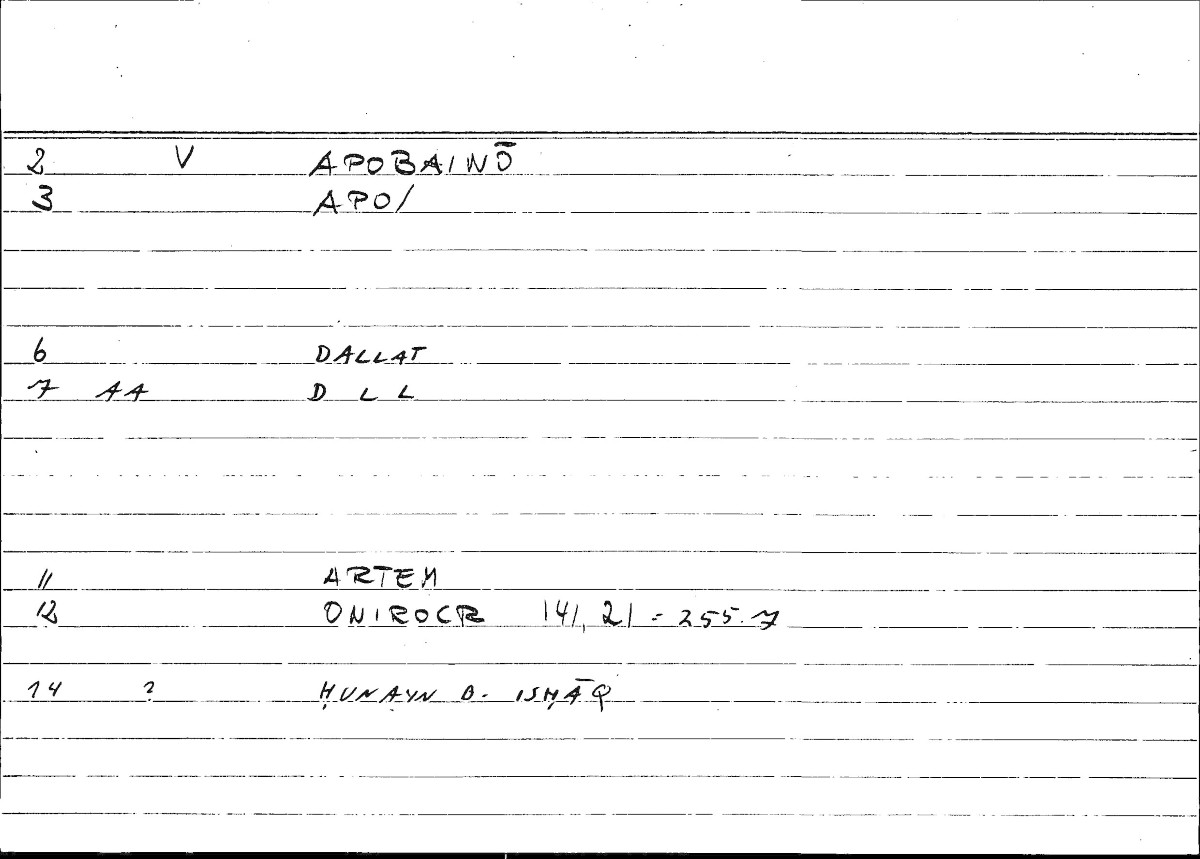 2 V APOBAINŌ
3 APO/
6 DALLAT
7 AA D L L
11 ARTEM
12 ONIROCR 141,21 = 255.7
14 ? ḤUNAYN B. ISḤĀQ